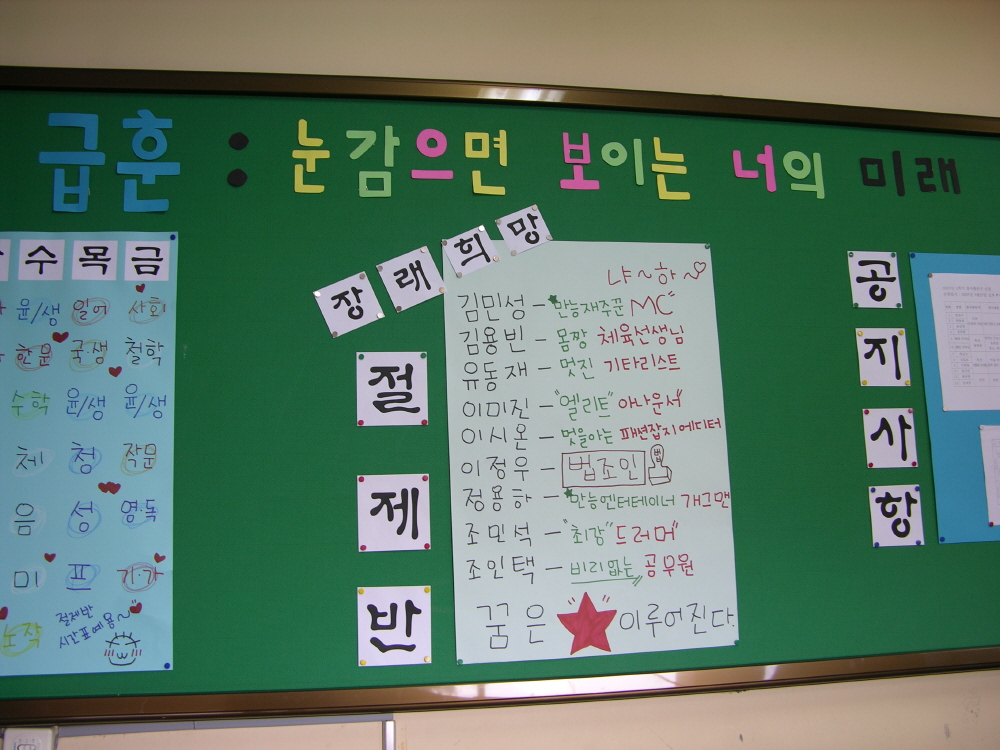 급훈 : 눈감으면 보이는 너의 미래
수 목 금
윤/생 일어 사회
한문 국·생 철학
수학 윤/생 윤/생
체 청 작문
음 성 영·독
미 프 기·가
노작
절제반
시간표예용~
장래희망
절제반
냐~하~♡
김민성 - 만능재주꾼 MC
김용빈 - 몸짱 체육선생님
유동재 - 멋진 기타리스트
이미진 - "엘리트" 아나운서
이시온 - 멋을아는 패션잡지에디터
이정우 - 법조인 법
정용하 - 만능엔터테이너 개그맨
조민석 - "최강"드러머"
조인택 - 비리없는 공무원
꿈은 ★ 이루어진다.
공지사항